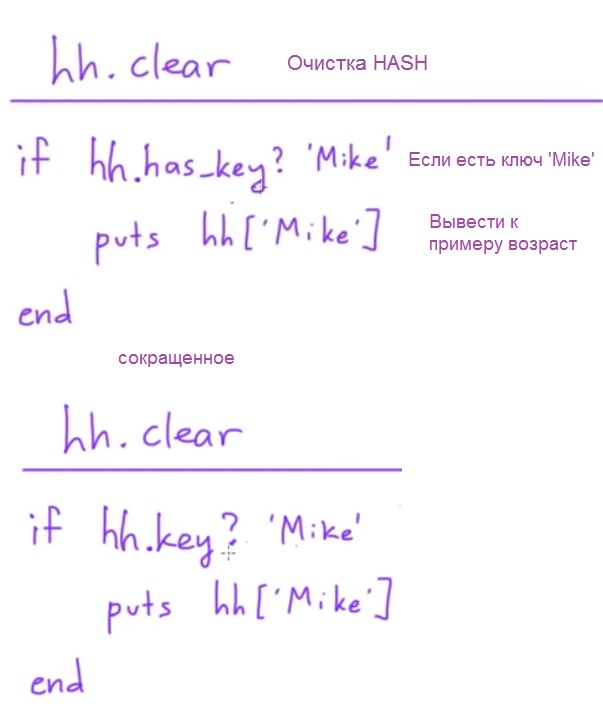 hh.clear Очистка HASH
if hh.has_key? 'Mike' Если есть ключ 'Mike'
puts hh['Mike'] Вывести к
примеру возраст
end
сокращенное
hh.clear
if hh.key? 'Mike'
puts hh['Mike']
end